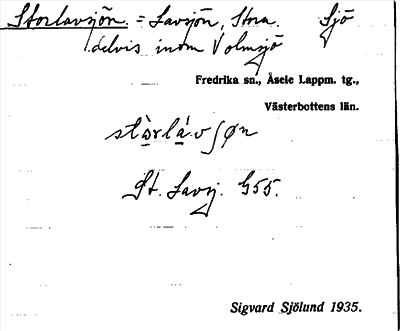 Storlavsjön. = Lavsjön, Stora. Sjö
delvis inom Volmsjö
Fredrika sn., Åsele Lappm. tg.,
Västerbottens län.
stårlávʃøn
St. Lavsj. G55.
Sigvard Sjölund 1935.